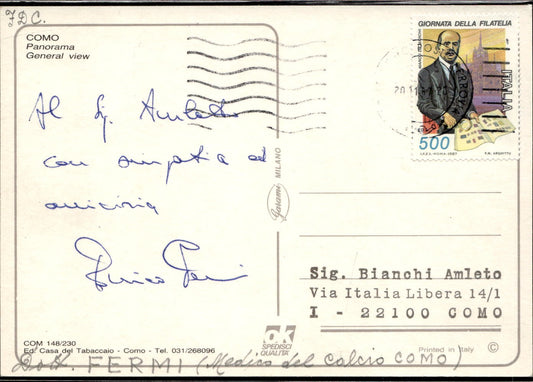 D.C.
COMO
Panorama
General view
GIORNATA DELLA FILATELIA
ITALIA
500
I.P.Z.S.-ROMA-1987
Al Sig. Amleto
con simpatia ed
amicizia
Enrico Fermi
Garami MILANO
Sig. Bianchi Amleto
Via Italia Libera 14/1
I - 22100 COMO
COM 148/230
Ed. Casa del Tabaccaio - Como - Tel. 031/268096
OK
SPEDISCI
QUALITA'
Printed in Italy ©
Dott. FERMI (Medico del Calcio COMO)